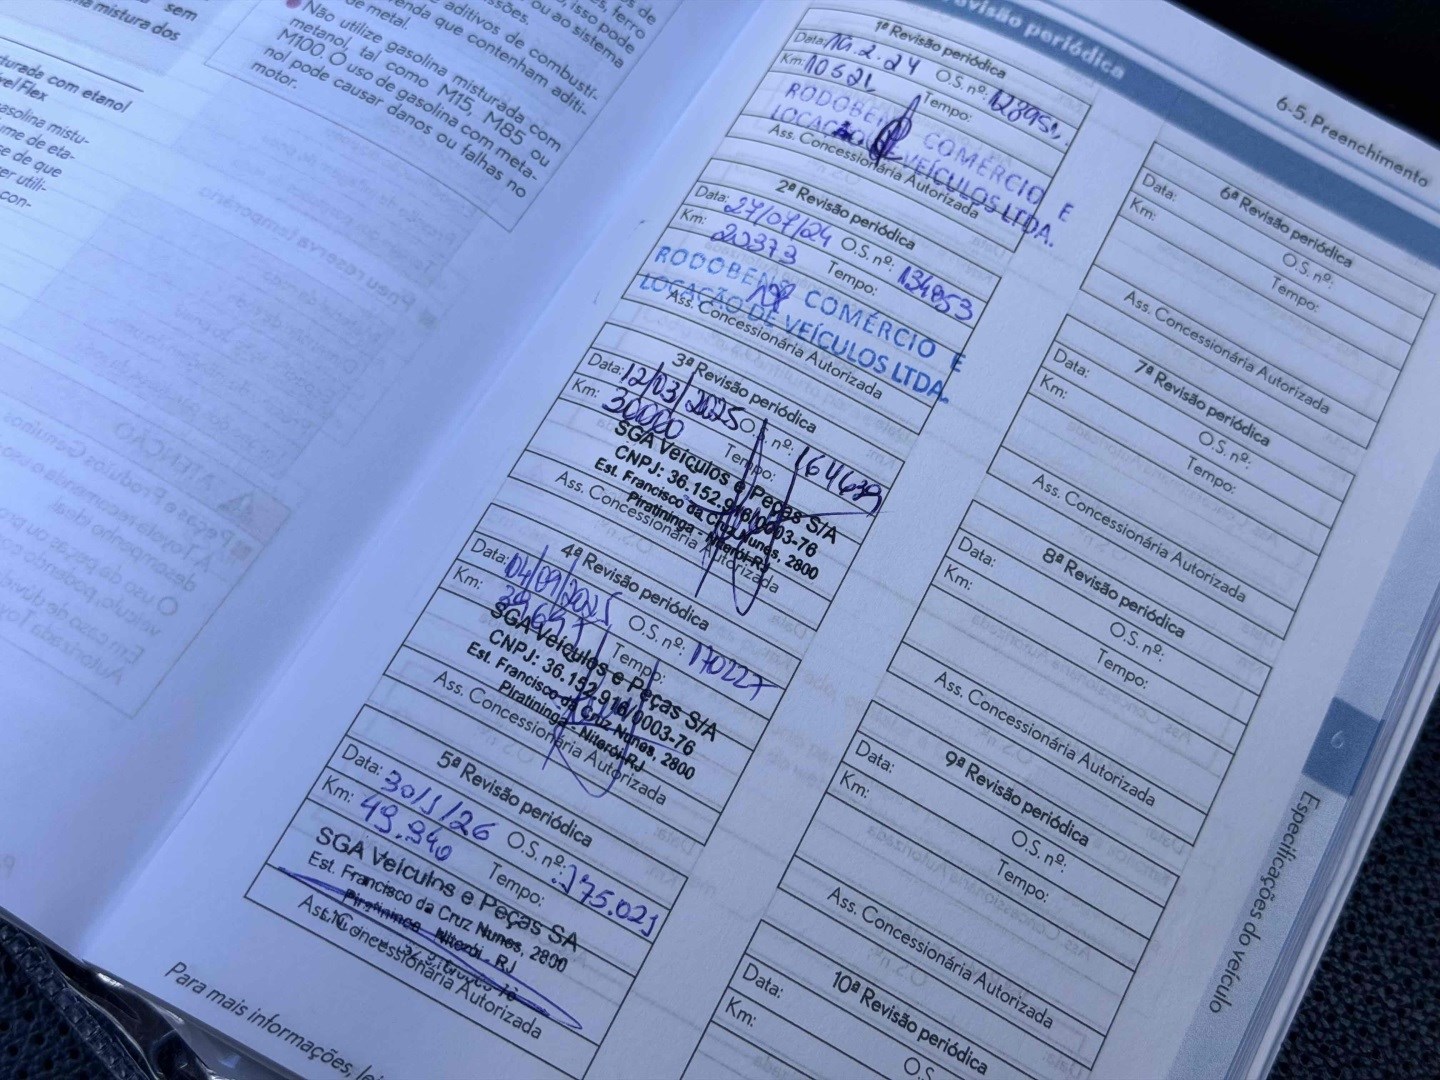 sem
mistura dos
turada com etanol
vel Flex
asolina mistu-
me de eta-
se de que
er utili-
con-
isso pode
ou ao sistema
aditivos de combustí-
enda que contenham aditi-
de metal.
Não utilize gasolina misturada com
metanol, tal como M15, M85 ou
M100. O uso de gasolina com meta-
nol pode causar danos ou falhas no
motor.
revisão periódica
6-5. Preenchimento
1ª Revisão periódica
Data: O.S. nº:
Km: 10621 Tempo:
RODOBENS COMÉRCIO E
LOCAÇÃO DE VEÍCULOS LTDA.
Ass. Concessionária Autorizada
2ª Revisão periódica
Data: O.S. nº: 134853
Km: 20373 Tempo:
RODOBENS COMÉRCIO E
LOCAÇÃO DE VEÍCULOS LTDA.
Ass. Concessionária Autorizada
3ª Revisão periódica
Data: 12/03/2025 O.S. nº: 164639
Km: 30000 Tempo:
SGA Veículos e Peças S/A
CNPJ: 36.152.916/0003-76
Est. Francisco da Cruz Nunes, 2800
Piratininga - Niterói-RJ
Ass. Concessionária Autorizada
4ª Revisão periódica
Data: 04/09/2025 O.S. nº: 170227
Km: Tempo:
SGA Veículos e Peças S/A
CNPJ: 36.152.916/0003-76
Est. Francisco da Cruz Nunes, 2800
Piratininga - Niterói-RJ
Ass. Concessionária Autorizada
5ª Revisão periódica
Data: 30/1/26 O.S. nº: 175.021
Km: 49.940 Tempo:
SGA Veículos e Peças SA
Est. Francisco da Cruz Nunes, 2800
Piratininga - Niterói - RJ
Ass. Concessionária Autorizada
Para mais informações,
6ª Revisão periódica
Data: O.S. nº:
Km: Tempo:
Ass. Concessionária Autorizada
7ª Revisão periódica
Data: O.S. nº:
Km: Tempo:
Ass. Concessionária Autorizada
8ª Revisão periódica
Data: O.S. nº:
Km: Tempo:
Ass. Concessionária Autorizada
9ª Revisão periódica
Data: O.S. nº:
Km: Tempo:
Ass. Concessionária Autorizada
10ª Revisão periódica
Data: O.S.
Km:
6
Especificações do veículo